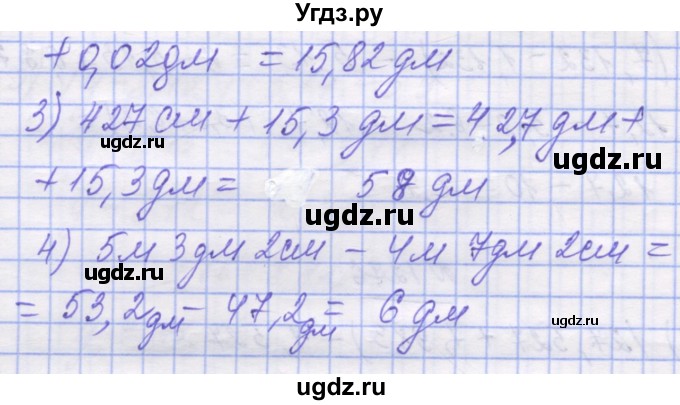 Угдз.ру
+0,02дм = 15,82дм
3) 427 см + 15,3 дм = 42,7 дм +
+ 15,3 дм = 58 дм
ugdz.ru ugdz.ru
4) 5м 3дм 2см - 4м 7дм 2см =
ugdz.ru ugdz.ru
= 53,2дм - 47,2дм = 6 дм
ugdz.ru